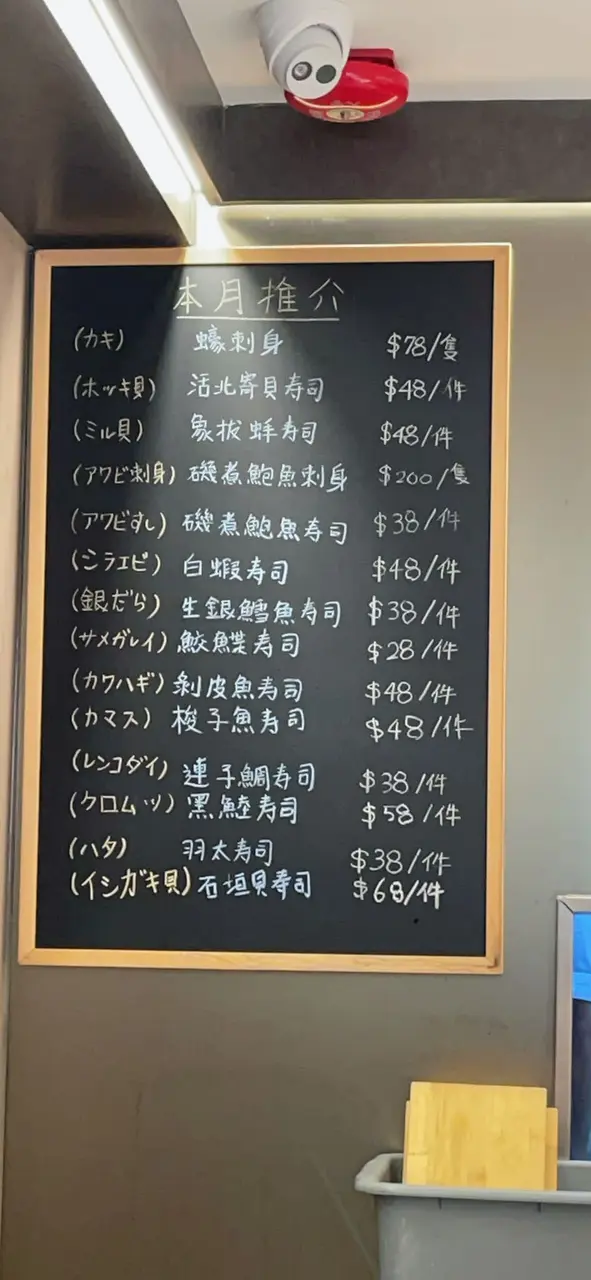 本月推介
(カキ) 蠔刺身 $78/隻
(ホッキ貝) 活北寄貝寿司 $48/件
(ミル貝) 象拔蚌寿司 $48/件
(アワビ刺身) 磯煮鮑魚刺身 $200/隻
(アワビすし) 磯煮鮑魚寿司 $38/件
(シラエビ) 白蝦寿司 $48/件
(銀だら) 生銀鱈魚寿司 $38/件
(サメガレイ) 鮫鰈寿司 $28/件
(カワハギ) 剝皮魚寿司 $48/件
(カマス) 梭子魚寿司 $48/件
(レンコダイ) 連子鯛寿司 $38/件
(クロムツ) 黑鯥寿司 $58/件
(ハタ) 羽太寿司 $38/件
(イシガキ貝) 石垣貝寿司 $68/件